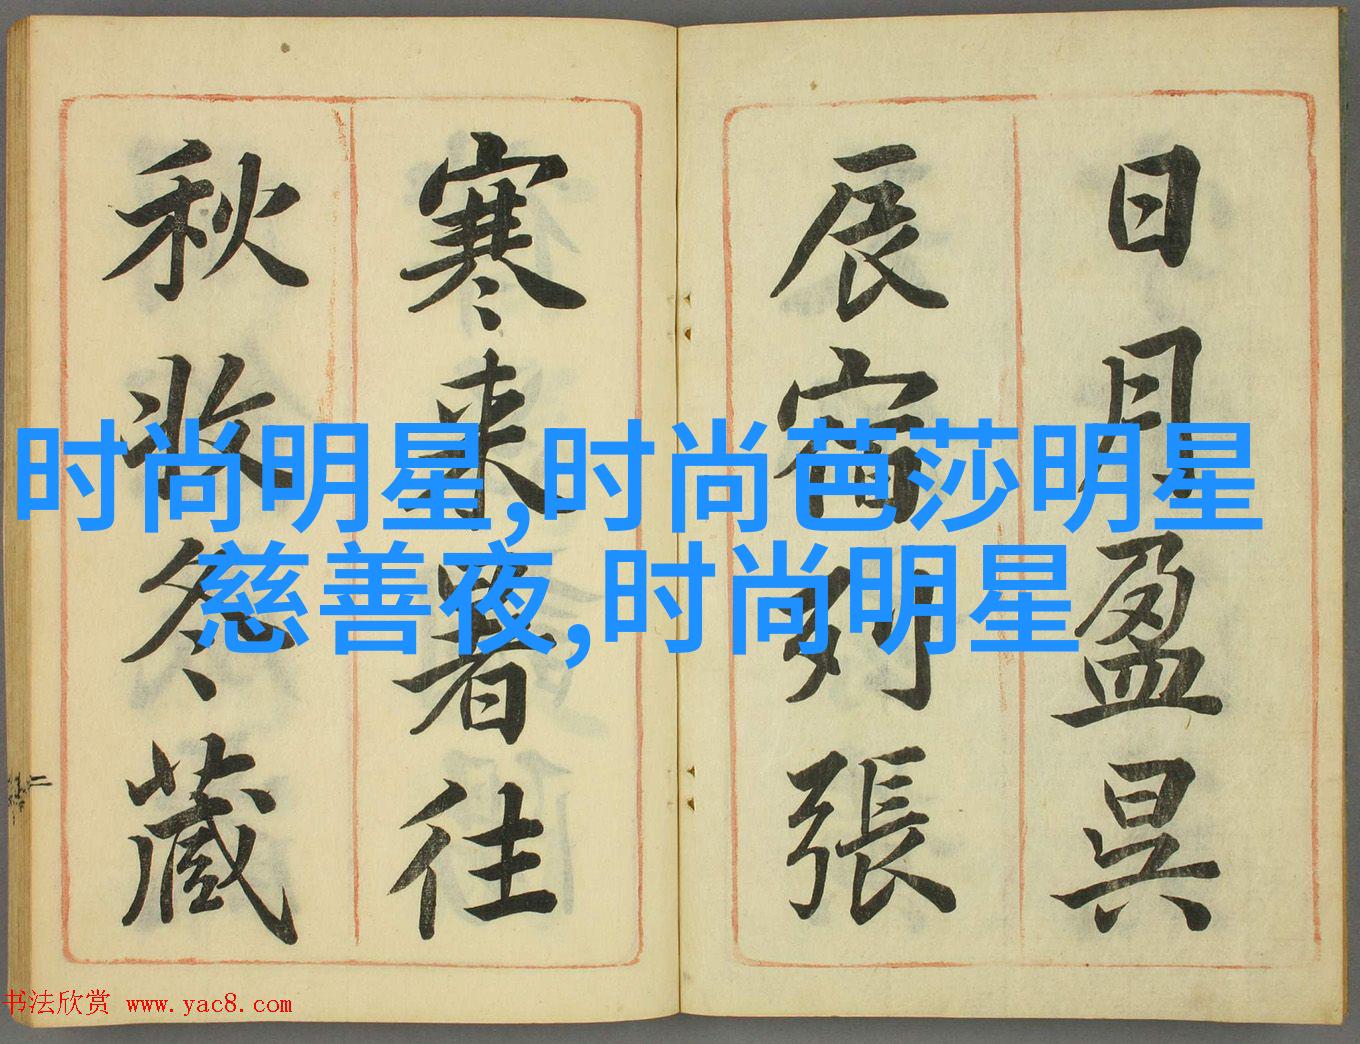 日月盈昃
辰宿列張
寒来暑往
秋收冬藏
时尚明星,时尚芭莎明星
慈善夜,时尚明星
书法欣赏 www.yac8.com